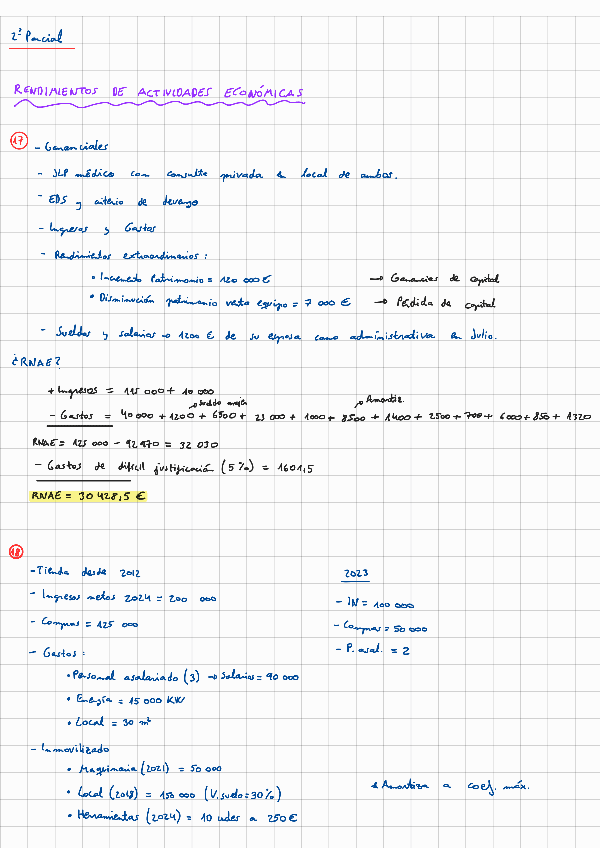 2º Parcial
RENDIMIENTOS DE ACTIVIDADES ECONÓMICAS
17
- Gananciales
- JLP médico con consulta privada en local de ambos.
- EDS y criterio de devengo
- Ingresos y Gastos
- Rendimientos extraordinarios:
• Incremento Patrimonio = 120 000 € → Ganancias de capital
• Disminución patrimonio venta equipo = 7 000 € → Pérdida de capital
- Sueldos y salarios → 1200 € de su esposa como administrativa en Julio.
¿RNAE?
+ Ingresos = 115 000 + 10 000
→ Sueldo mujer → Amortiz.
- Gastos = 40 000 + 1200 + 6500 + 23 000 + 1000 + 8500 + 1400 + 2500 + 700 + 6000 + 850 + 1320
RNAE = 125 000 - 92 970 = 32 030
- Gastos de difícil justificación (5%) = 1601,5
RNAE = 30 428,5 €
18
- Tienda desde 2012 2023
- Ingresos netos 2024 = 200 000 - IN = 100 000
- Compras = 125 000 - Compras = 50 000
- Gastos: - P. asal. = 2
• Personal asalariado (3) → Salarios = 90 000
• Energía = 15 000 KW
• Local = 30 m²
- Inmovilizado
• Maquinaria (2021) = 50 000
• Local (2018) = 150 000 (V. suelo = 30%) * Amortiza a coef. máx.
• Herramientas (2024) = 10 udes a 250 €